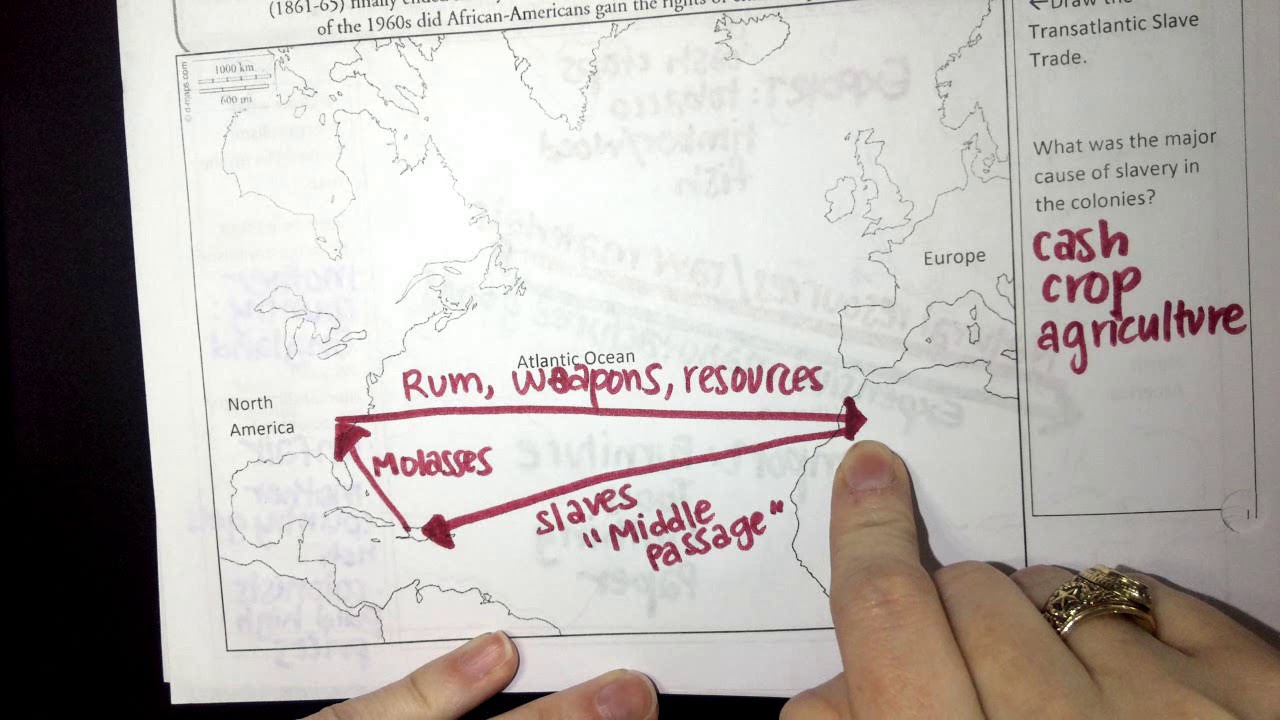 (1861-65) finally ended
of the 1960s did African-Americans gain the rights of
←Draw the
Transatlantic Slave
Trade.
© d-maps.com
1000 km
600 mi
What was the major
cause of slavery in
the colonies?
cash
crop
agriculture
Europe
Atlantic Ocean
Rum, weapons, resources
North
America
Molasses
slaves
"Middle
passage"